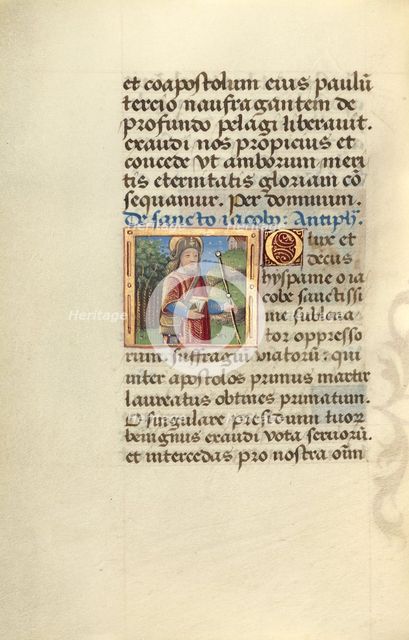 et coapostolum eius paulū
tercio naufragantem de
profundo pelagi liberauit.
exaudi nos propicius et
concede vt amborum meri
tis eternitatis gloriam cō
sequamur. Per dominum.
De sancto iacobo. Antiph̄.
O lux et
decus
hyspanie o ia
cobe sanctissi
me subleua
tor oppresso
rum. suffragiū viatorū. qui
inter apostolos primus martir
laureatus obtines primatum.
O singulare presidium tuorū
benignus exaudi vota seruorū.
et intercedas pro nostra om̄
Heritage